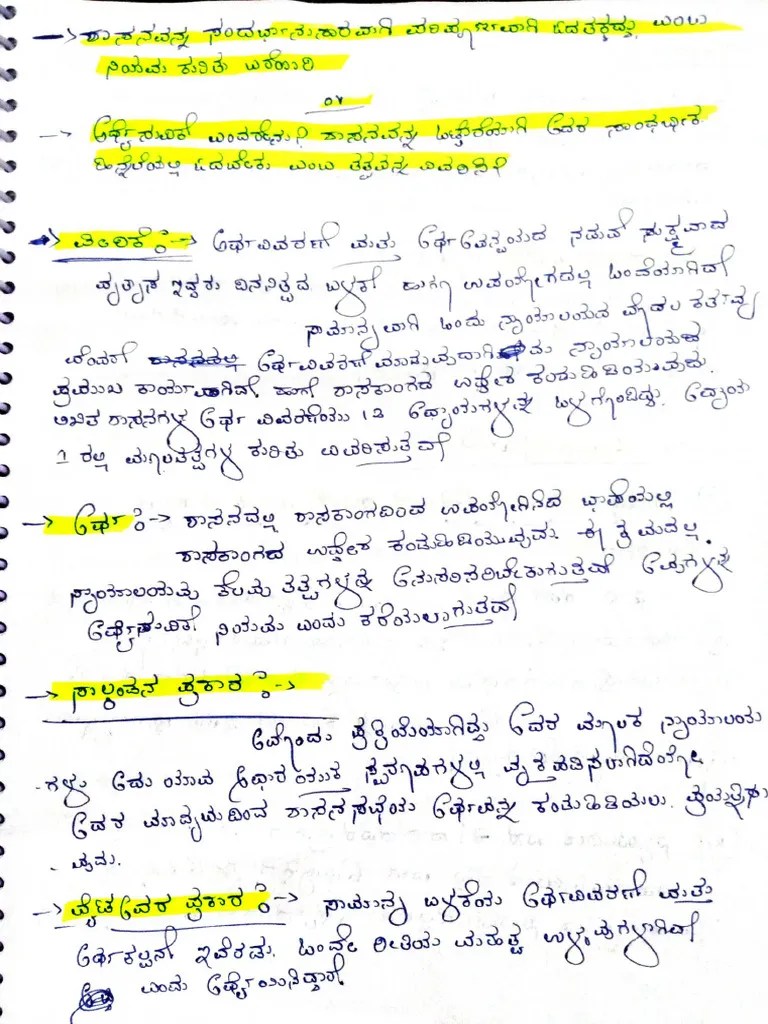 → ಶಾಸನವನ್ನು ಸಂದರ್ಭಾನುಸಾರವಾಗಿ ಪರಿಪೂರ್ಣವಾಗಿ ಓದತಕ್ಕದ್ದು ಎಂಬ
ನಿಯಮ ಕುರಿತು ಬರೆಯಿರಿ
or
→ ಅರ್ಥೈಸುವಿಕೆ ಎಂದರೇನು? ಶಾಸನವನ್ನು ಒಟ್ಟಾರೆಯಾಗಿ ಅದರ ಸಾಂದರ್ಭಿಕ
ಹಿನ್ನೆಲೆಯಲ್ಲಿ ಓದಬೇಕು ಎಂಬ ತತ್ವವನ್ನು ವಿವರಿಸಿ?
→ ಪೀಠಿಕೆ :→ ಅರ್ಥವಿವರಣೆ ಮತ್ತು ಅರ್ಥಾನ್ವಯದ ನಡುವೆ ಸೂಕ್ಷ್ಮವಾದ
ವ್ಯತ್ಯಾಸ ಇದ್ದರು ದಿನನಿತ್ಯದ ಬಳಕೆ ಹಾಗೂ ಉಪಯೋಗದಲ್ಲಿ ಒಂದೆಯಾಗಿದೆ
ಸಾಮಾನ್ಯವಾಗಿ ಒಂದು ನ್ಯಾಯಾಲಯದ ಮೊದಲ ಕರ್ತವ್ಯ
ಅರ್ಥವಿವರಣೆ ಮಾಡುವುದಾಗಿ ನ್ಯಾಯಾಲಯದ
ಪ್ರಮುಖ ಕಾರ್ಯವಾಗಿದೆ ಹಾಗೆ ಶಾಸಕಾಂಗದ ಉದ್ದೇಶ ಕಂಡುಹಿಡಿಯುವುದು.
ಲಿಖಿತ ಶಾಸನಗಳ ಅರ್ಥ ವಿವರಣೆಯು 12 ಅಧ್ಯಾಯಗಳನ್ನು ಒಳಗೊಂಡಿದ್ದು. ಅಧ್ಯಾಯ
1 ರಲ್ಲಿ ಮೂಲತತ್ವಗಳ ಕುರಿತು ವಿವರಿಸುತ್ತದೆ
→ ಅರ್ಥ :→ ಶಾಸನದಲ್ಲಿ ಶಾಸಕಾಂಗದಿಂದ ಉಪಯೋಗಿಸಿದ ಭಾಷೆಯಲ್ಲಿ
ಶಾಸಕಾಂಗದ ಉದ್ದೇಶ ಕಂಡುಹಿಡಿಯುವುದು. ಈ ಕ್ರಮದಲ್ಲಿ
ನ್ಯಾಯಾಲಯವು ಕೆಲವು ತತ್ವಗಳನ್ನು ಅನುಸರಿಸಬೇಕಾಗುತ್ತದೆ ಅವುಗಳನ್ನು
ಅರ್ಥೈಸುವಿಕೆ ನಿಯಮ ಎಂದು ಕರೆಯಲಾಗುತ್ತದೆ
→ ಸಾಲ್ಮಂಡನ ಪ್ರಕಾರ :→
ಅದೊಂದು ಪ್ರಕ್ರಿಯೆಯಾಗಿದ್ದು ಅದರ ಮೂಲಕ ನ್ಯಾಯಾಲಯ
-ಗಳು ಅದು ಯಾವ ಅಧಿಕಾರಯುಕ್ತ ಸ್ವರೂಪಗಳಲ್ಲಿ ವ್ಯಕ್ತಪಡಿಸಲಾಗಿದೆಯೋ
ಅದರ ಮಾಧ್ಯಮದಿಂದ ಶಾಸನಸಭೆಯ ಅರ್ಥವನ್ನು ಕಂಡುಹಿಡಿಯಲು ಪ್ರಯತ್ನಿಸು
-ವುದು.
→ ವೈಟ್ ಅವರ ಪ್ರಕಾರ :→ ಸಾಮಾನ್ಯ ಬಳಕೆಯ ಅರ್ಥವಿವರಣೆ ಮತ್ತು
ಅರ್ಥಕಲ್ಪನೆ ಇವೆರಡು ಒಂದೇ ರೀತಿಯ ಮಹತ್ವ ಉಳ್ಳವುಗಳಾಗಿವೆ
ಎಂದು ಅರ್ಥೈಯಿಸಿದ್ದಾರೆ.